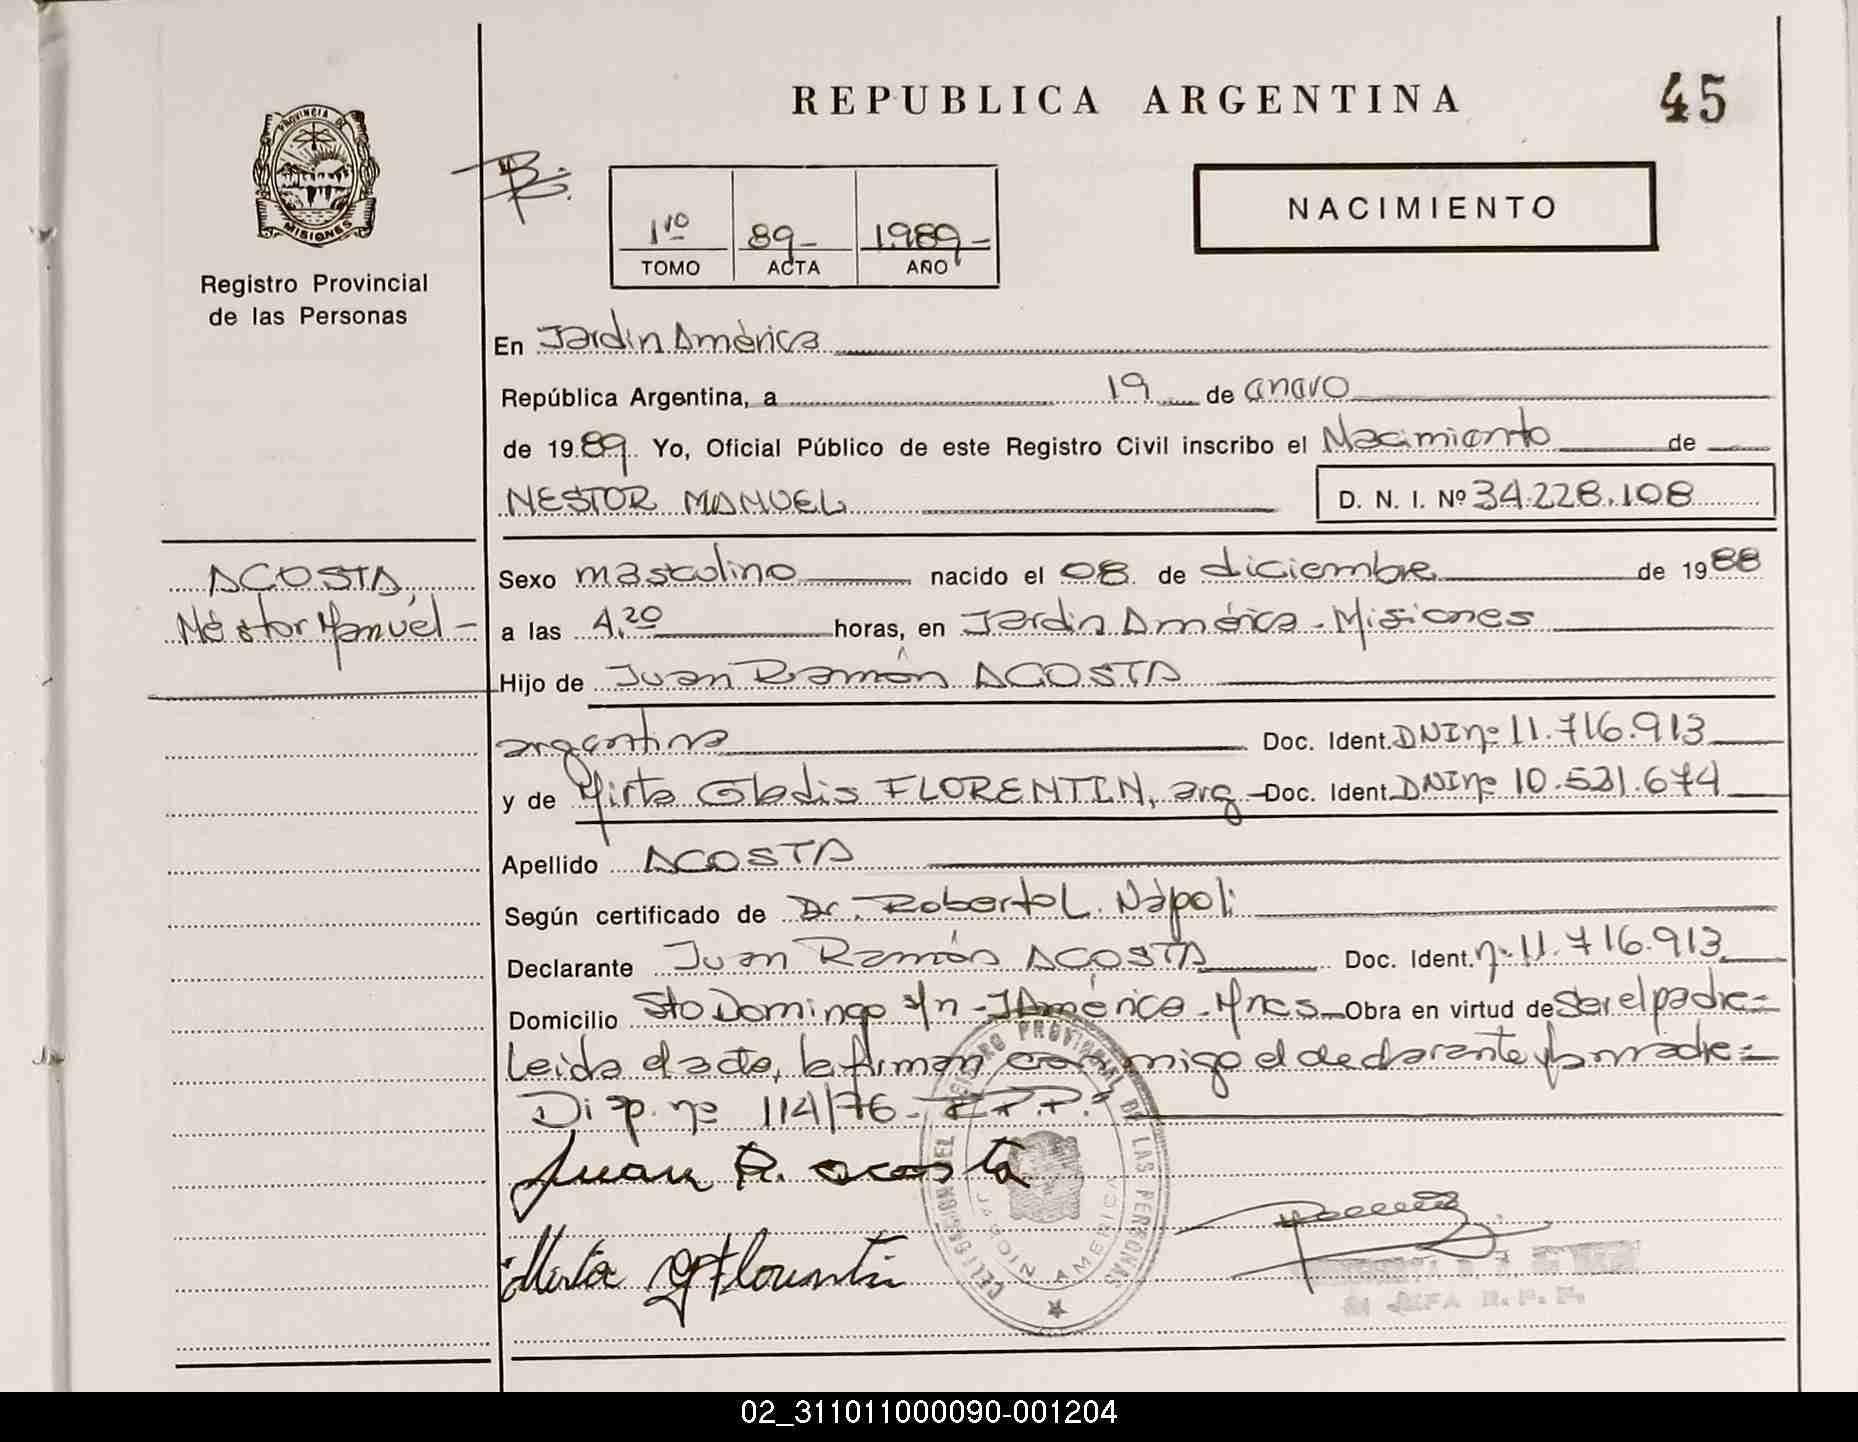 REPUBLICA ARGENTINA
45
PROVINCIA DE
MISIONES
Registro Provincial
de las Personas
NACIMIENTO
1ro 89- 1989-
TOMO ACTA AÑO
En Jardín América
República Argentina, a 19 de enero
de 1989 Yo, Oficial Público de este Registro Civil inscribo el Nacimiento de
NESTOR MANUEL D. N. I. Nº 34.228.108
ACOSTA,
Néstor Manuel -
Sexo masculino nacido el 08 de diciembre de 1988
a las 4,20 horas, en Jardín América - Misiones
Hijo de Juan Ramón ACOSTA
argentina Doc. Ident. DNI nº 11.716.913
y de Mirta Gladis FLORENTIN, arg - Doc. Ident. DNI nº 10.521.674
Apellido ACOSTA
Según certificado de Dr. Roberto L. Nápoli
Declarante Juan Ramón ACOSTA Doc. Ident. nº 11.716.913
Domicilio Sto Domingo s/n - J América - Mnes - Obra en virtud de ser el padre =
Leida el acta, la firman conmigo el declarante y la madre =
Disp. nº 114/76 - R.P.P.
Juan R. acosta
Mirta G Florentin
REGISTRO PROVINCIAL DE LAS PERSONAS
JARDIN AMERICA
R. P. P.
02_311011000090-001204